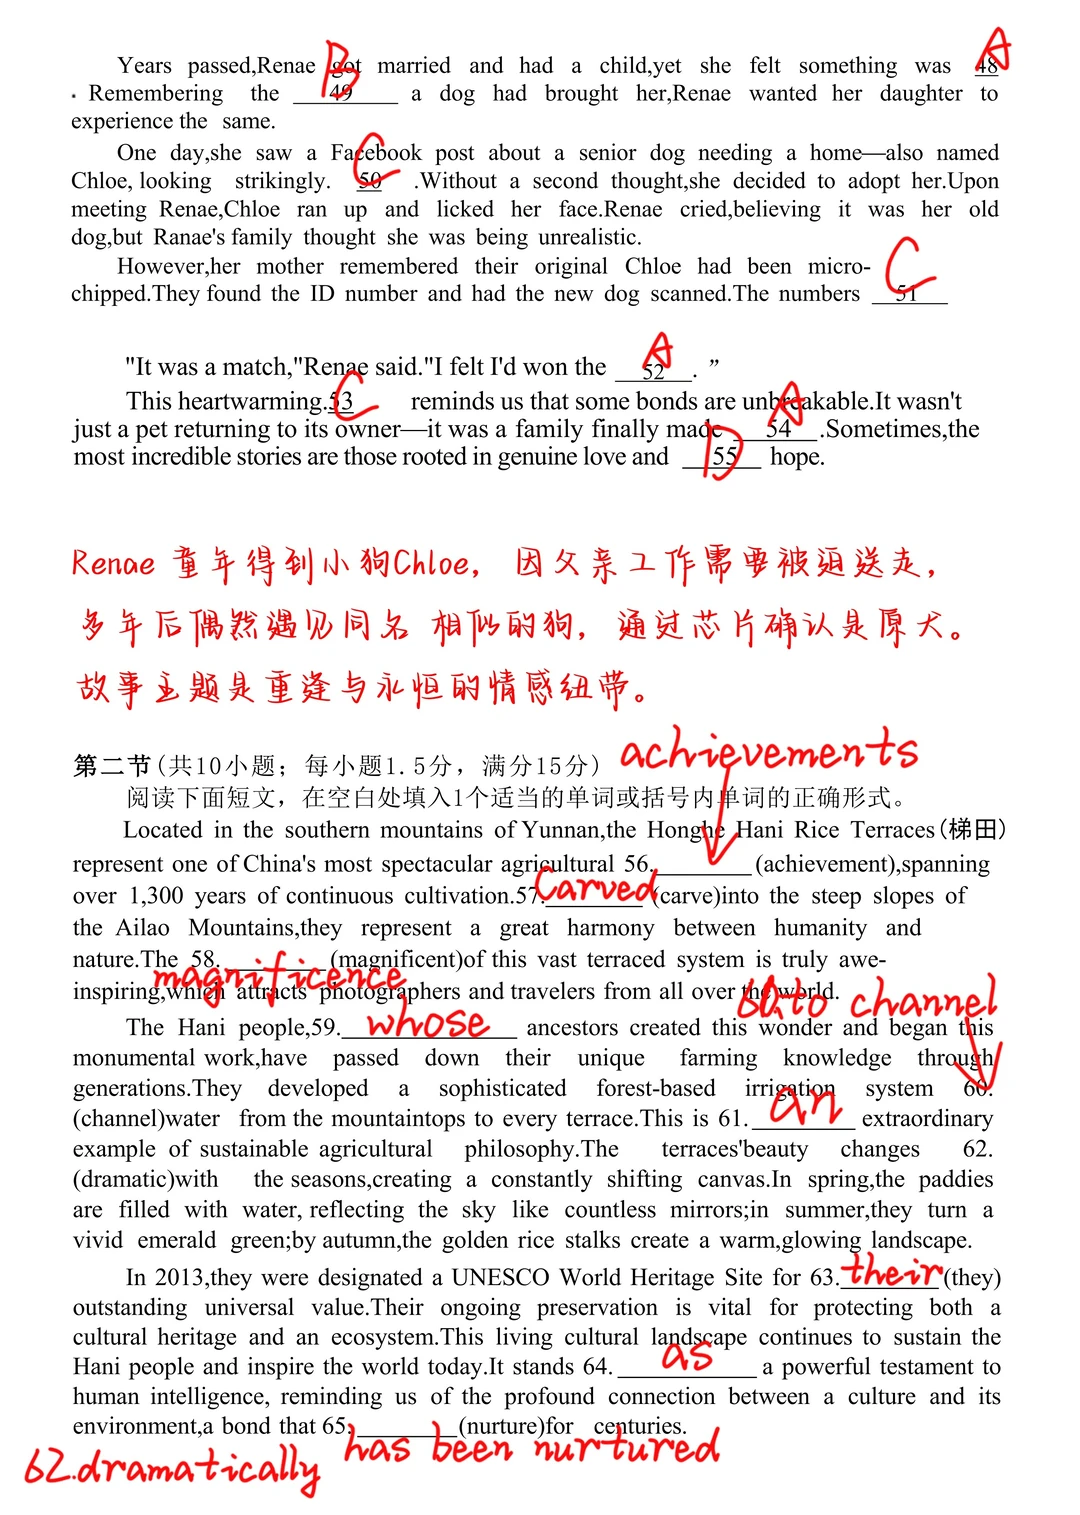 Years passed,Renae got married and had a child,yet she felt something was 48
A
B
. Remembering the 49 a dog had brought her,Renae wanted her daughter to
experience the same.
One day,she saw a Facebook post about a senior dog needing a home—also named
C
Chloe, looking strikingly. 50 .Without a second thought,she decided to adopt her.Upon
meeting Renae,Chloe ran up and licked her face.Renae cried,believing it was her old
dog,but Ranae's family thought she was being unrealistic.
However,her mother remembered their original Chloe had been micro-
C
chipped.They found the ID number and had the new dog scanned.The numbers 51
A
"It was a match,"Renae said."I felt I'd won the 52. ”
C
A
This heartwarming.53 reminds us that some bonds are unbreakable.It wasn't
just a pet returning to its owner—it was a family finally made 54 .Sometimes,the
D
most incredible stories are those rooted in genuine love and 55 hope.
Renae 童年得到小狗Chloe，因父亲工作需要被迫送走，
多年后偶然遇见同名 相似的狗，通过芯片确认是原犬。
故事主题是重逢与永恒的情感纽带。
achievements
第二节(共10小题；每小题1.5分，满分15分)
阅读下面短文，在空白处填入1个适当的单词或括号内单词的正确形式。
Located in the southern mountains of Yunnan,the Honghe Hani Rice Terraces(梯田)
represent one of China's most spectacular agricultural 56. (achievement),spanning
Carved
over 1,300 years of continuous cultivation.57. (carve)into the steep slopes of
the Ailao Mountains,they represent a great harmony between humanity and
nature.The 58. (magnificent)of this vast terraced system is truly awe-
magnificence
inspiring,which attracts photographers and travelers from all over the world.
60.to channel
whose
The Hani people,59. ancestors created this wonder and began this
monumental work,have passed down their unique farming knowledge through
generations.They developed a sophisticated forest-based irrigation system 60.
an
(channel)water from the mountaintops to every terrace.This is 61. extraordinary
example of sustainable agricultural philosophy.The terraces'beauty changes 62.
(dramatic)with the seasons,creating a constantly shifting canvas.In spring,the paddies
are filled with water, reflecting the sky like countless mirrors;in summer,they turn a
vivid emerald green;by autumn,the golden rice stalks create a warm,glowing landscape.
their
In 2013,they were designated a UNESCO World Heritage Site for 63. (they)
outstanding universal value.Their ongoing preservation is vital for protecting both a
cultural heritage and an ecosystem.This living cultural landscape continues to sustain the
as
Hani people and inspire the world today.It stands 64. a powerful testament to
human intelligence, reminding us of the profound connection between a culture and its
environment,a bond that 65. (nurture)for centuries.
has been nurtured
62.dramatically